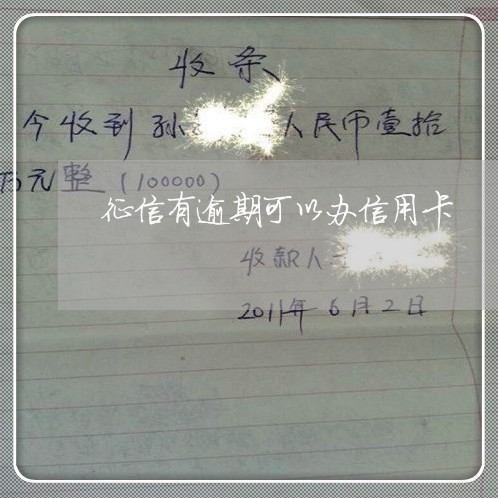 收条
今收到孙 人民币壹拾
万元整（100000）
征信有逾期可以办信用卡
收款人
2011年6月2日